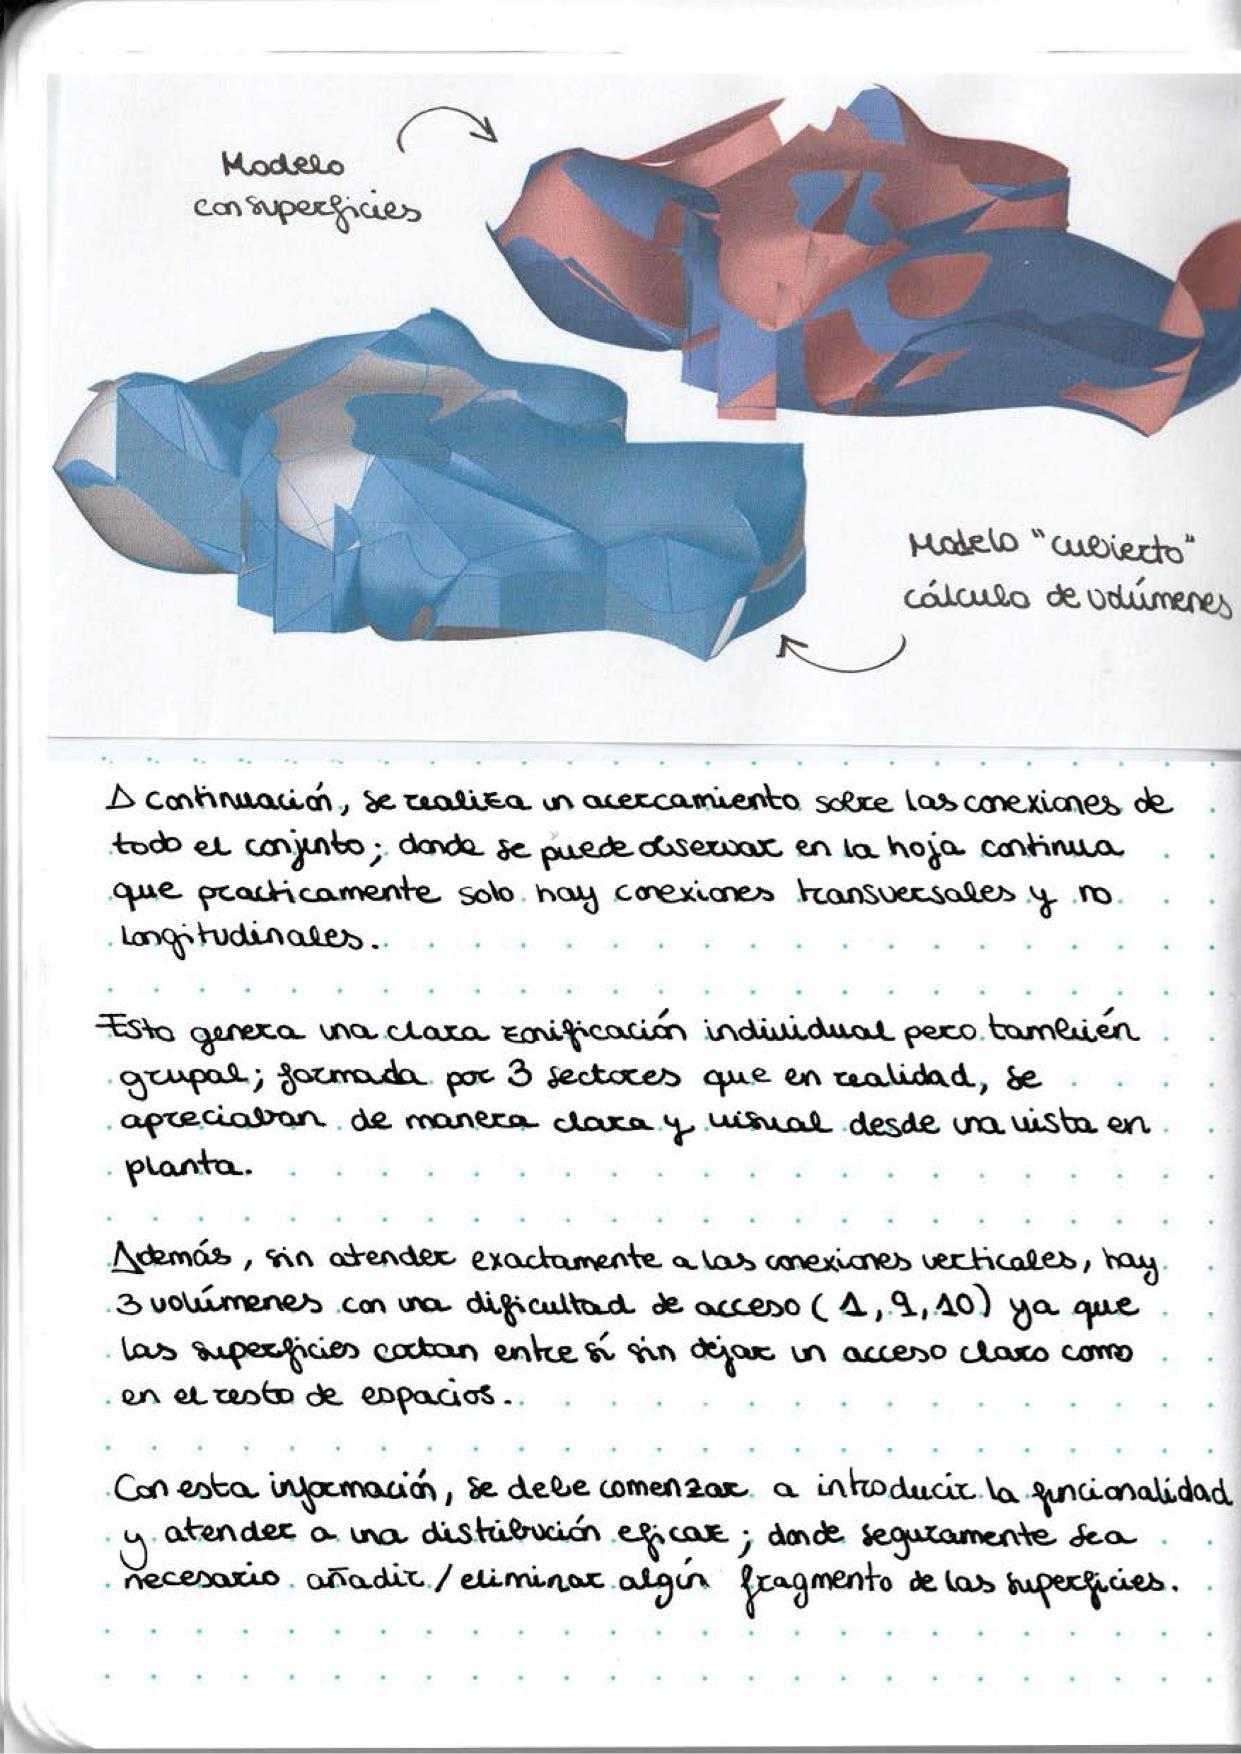 Modelo
con superficies
Modelo "cubierto"
cálculo de volúmenes
A continuación, se realiza un acercamiento sobre las conexiones de
todo el conjunto; donde se puede observar en la hoja continua
que practicamente solo hay conexiones transversales y no
longitudinales.
Esto genera una clara zonificación individual pero también
grupal; formada por 3 sectores que en realidad, se
apreciaban de manera clara y visual desde una vista en
planta.
Además, sin atender exactamente a las conexiones verticales, hay
3 volúmenes con una dificultad de acceso (1, 9, 10) ya que
las superficies cortan entre sí sin dejar un acceso claro como
en el resto de espacios.
Con esta información, se debe comenzar a introducir la funcionalidad
y atender a una distribución eficaz; donde seguramente sea
necesario añadir/eliminar algún fragmento de las superficies.